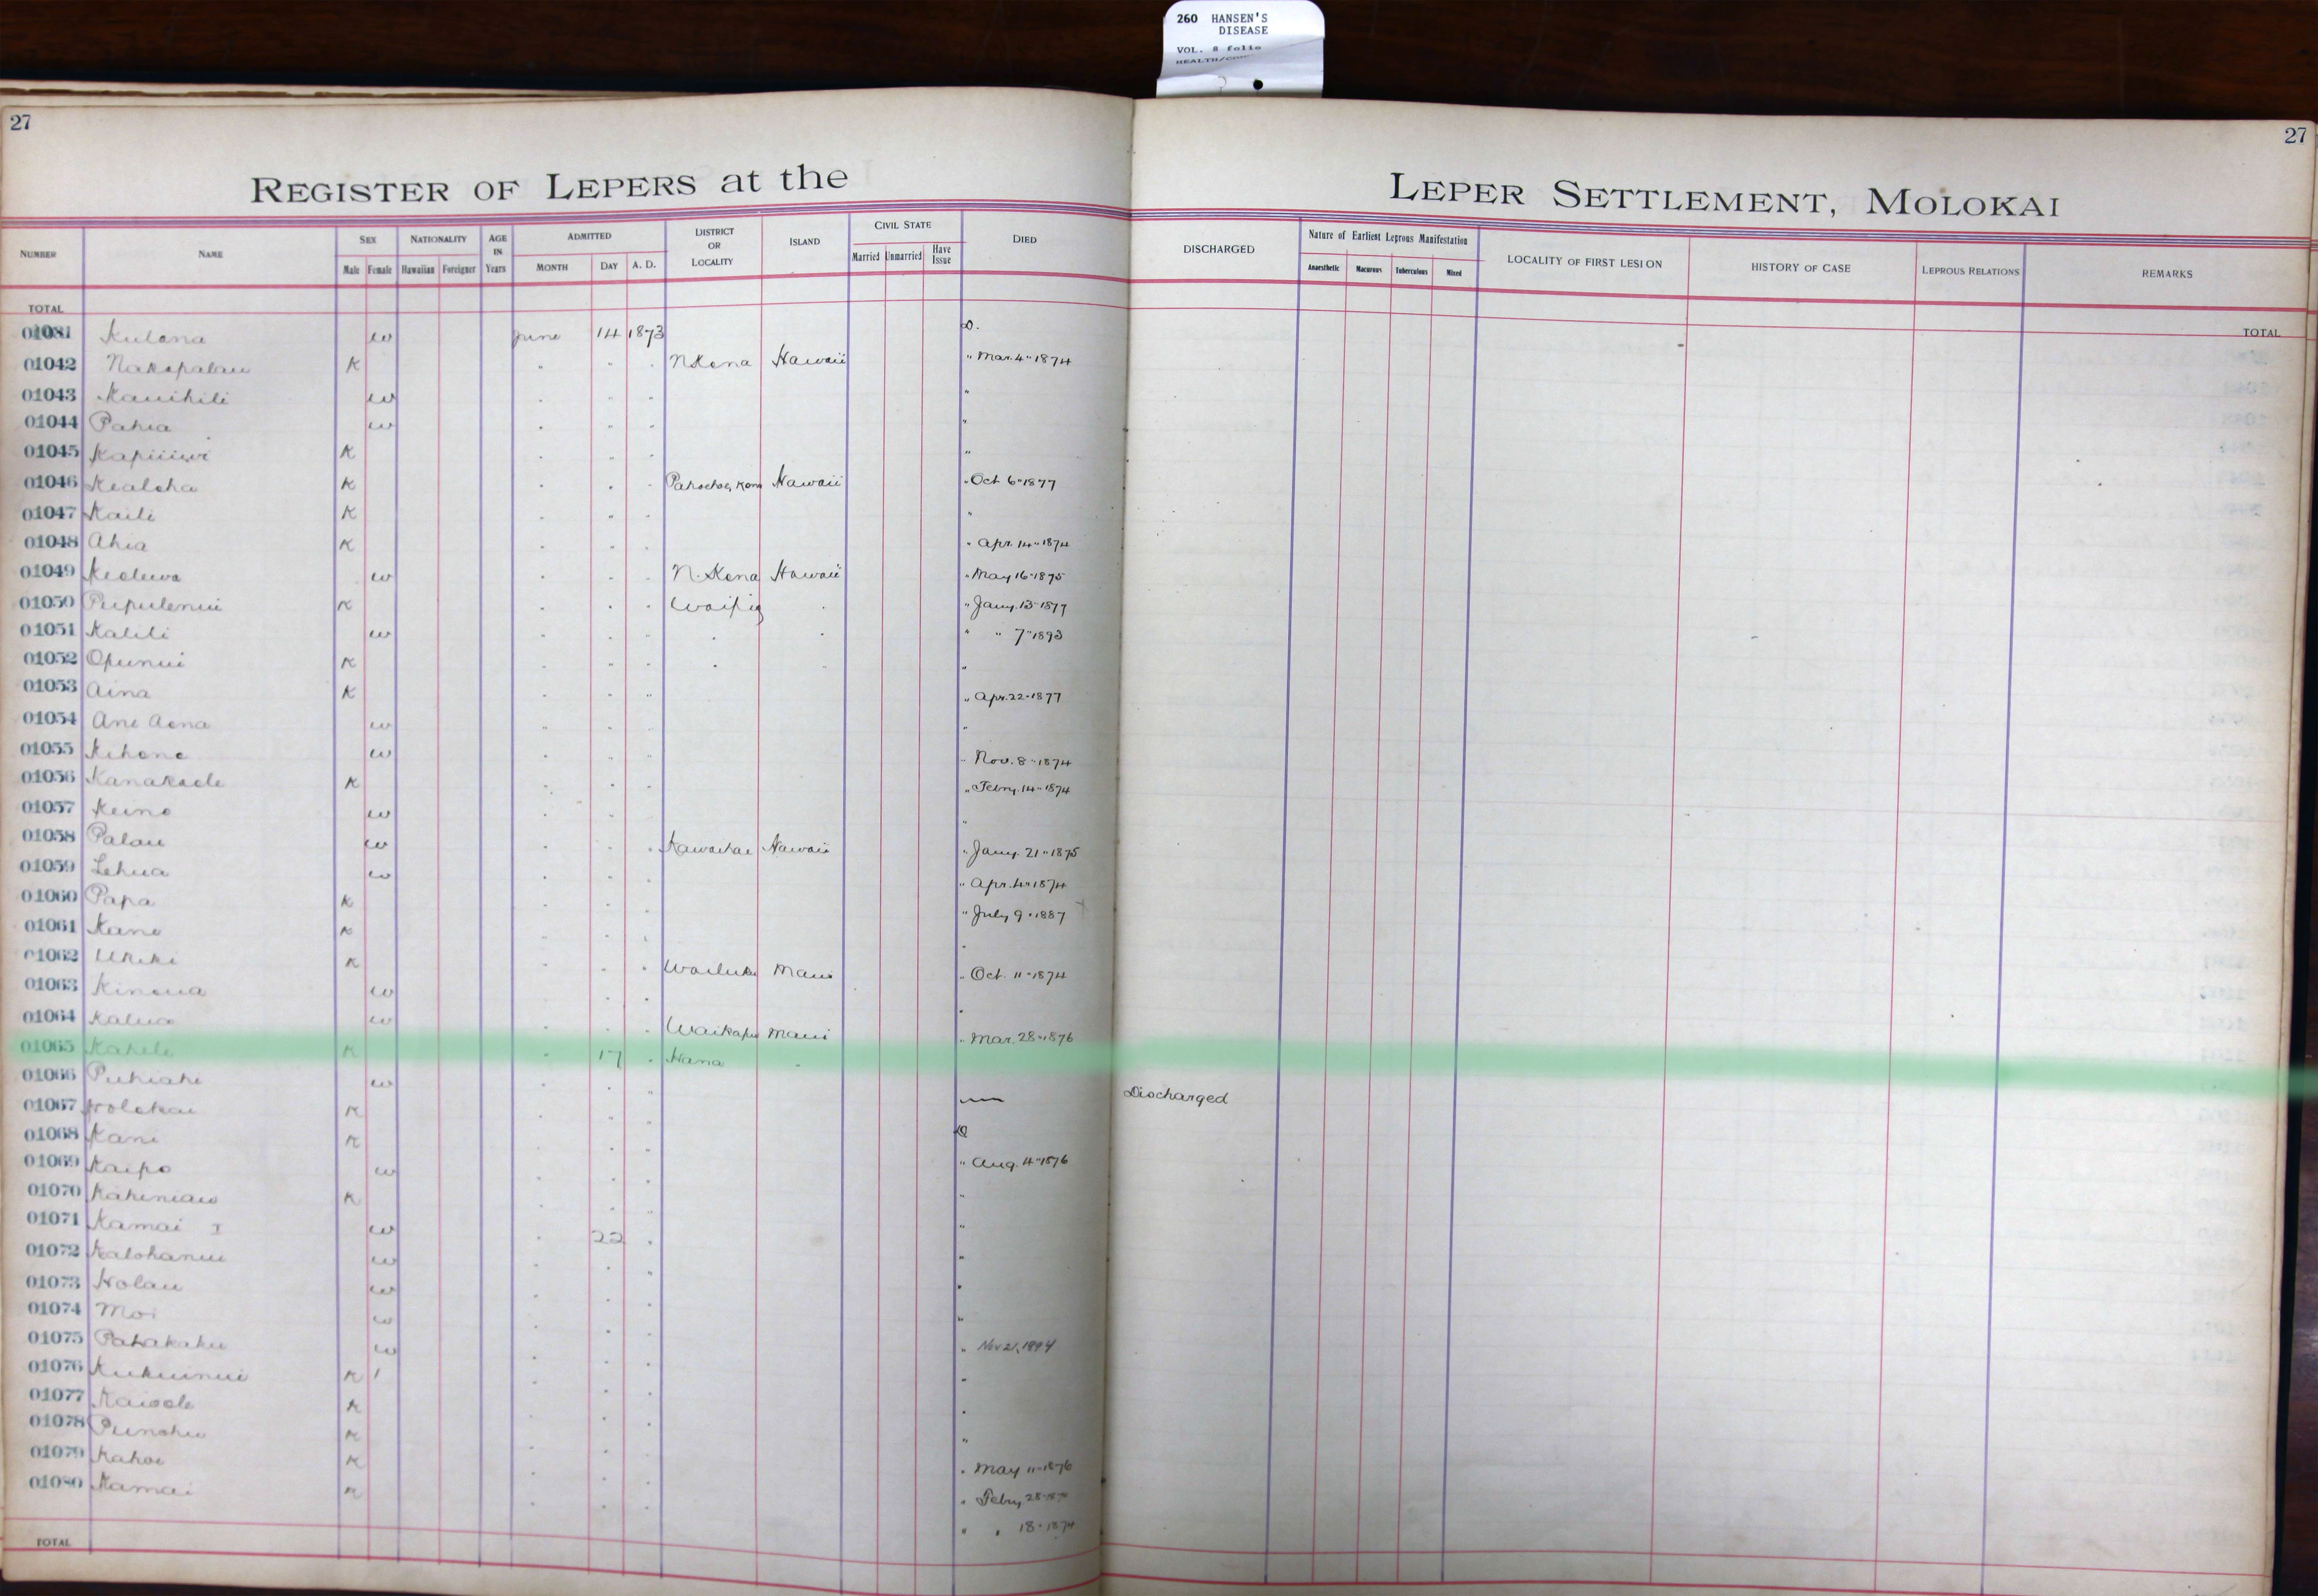 260 HANSEN'S
DISEASE
VOL. 8 folio
27
27
REGISTER OF LEPERS at the LEPER SETTLEMENT, MOLOKAI
NUMBER NAME SEX Male Female NATIONALITY Hawaiian Foreigner AGE IN Years ADMITTED MONTH DAY A. D. DISTRICT OR LOCALITY ISLAND CIVIL STATE Married Unmarried Have Issue DIED DISCHARGED Nature of Earliest Leprous Manifestation Anaesthetic Macurous Tuberculous Mixed LOCALITY OF FIRST LESION HISTORY OF CASE LEPROUS RELATIONS REMARKS
TOTAL TOTAL
Kulana w June 14 1873 D.
01042 Nakapalau K " " " N Kona Hawaii " Mar. 4" 1874
01043 Kauihili w " " " "
01044 Pahia w " " " "
01045 K " " " "
01046 Kealoha K " " " Hawaii " Oct 6" 1877
01047 Kaili K " " " "
01048 Ahia K " " " " Apr. 14" 1874
01049 w " " " N. Kona Hawaii " May 16" 1875
01050 Pupulenui K " " " " Jany. 13" 1877
01051 Kalili w " " " " " " " 7" 1893
01052 Opunui K " " " " " "
01053 Aina K " " " " Apr. 22" 1877
01054 Ane Aona w " " " "
01055 Kihene w " " " " Nov. 8" 1874
01056 Kanakaole K " " " " Febry. 14" 1874
01057 Keino w " " " "
01058 Palau w " " " Kawaihae Hawaii " Jany. 21" 1875
01059 Lehua w " " " " Apr. 4" 1874
01060 Papa K " " " " July 9" 1887
01061 Kane K " " " "
01062 Ukeke K " " " Wailuku Maui " Oct. 11" 1874
01063 Kinoua w " " " "
01064 Kalua w " " " Waikapu Maui " Mar. 28" 1876
01065 Kahele K " 17 " Hana "
01066 Puhiahi w " " " Discharged
01067 Holokai K " " " D
01068 Kani K " " " " Aug. 4" 1876
01069 Kaipo w " " " "
01070 Kaheniau K " " " "
01071 Kamai I w " 22 " "
01072 Kalohanui w " " " "
01073 Holau w " " " "
01074 Moi w " " " " Nov 21, 1894
01075 Pahakahu w " " " "
01076 Kukuinui K " " " "
01077 Kaiaole K " " " "
01078 Punohu K " " " " May 11" 1876
01079 Kahoe K " " " " Febry 28"
01080 Kamai K " " " " " 18" 1874
TOTAL